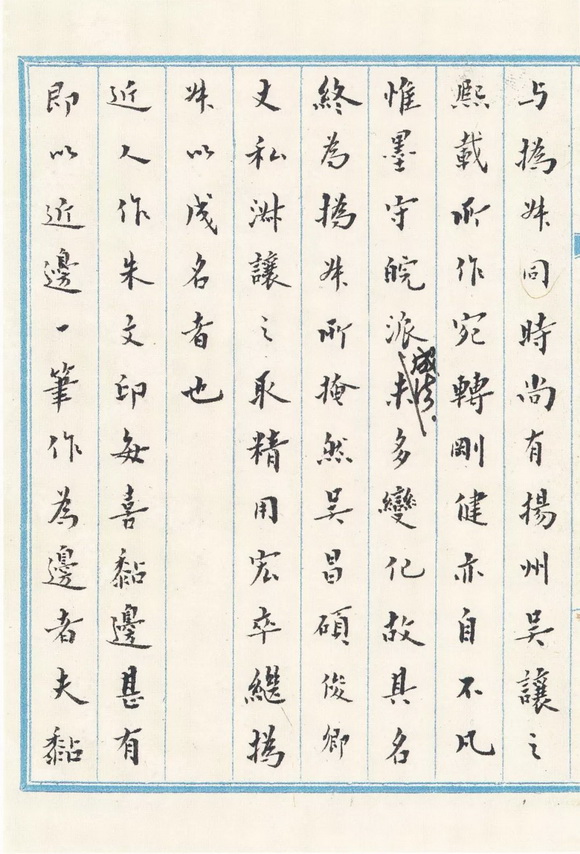 与撝叔同時尚有揚州吴讓之
熙載所作宛轉剛健亦自不凡
惟墨守皖派成法未多變化故其名
終為撝叔所掩然吴昌碩俊卿
丈私淑讓之取精用宏卒繼撝
叔以成名者也
近人作朱文印每喜黏邊甚有
即以近邊一筆作為邊者夫黏